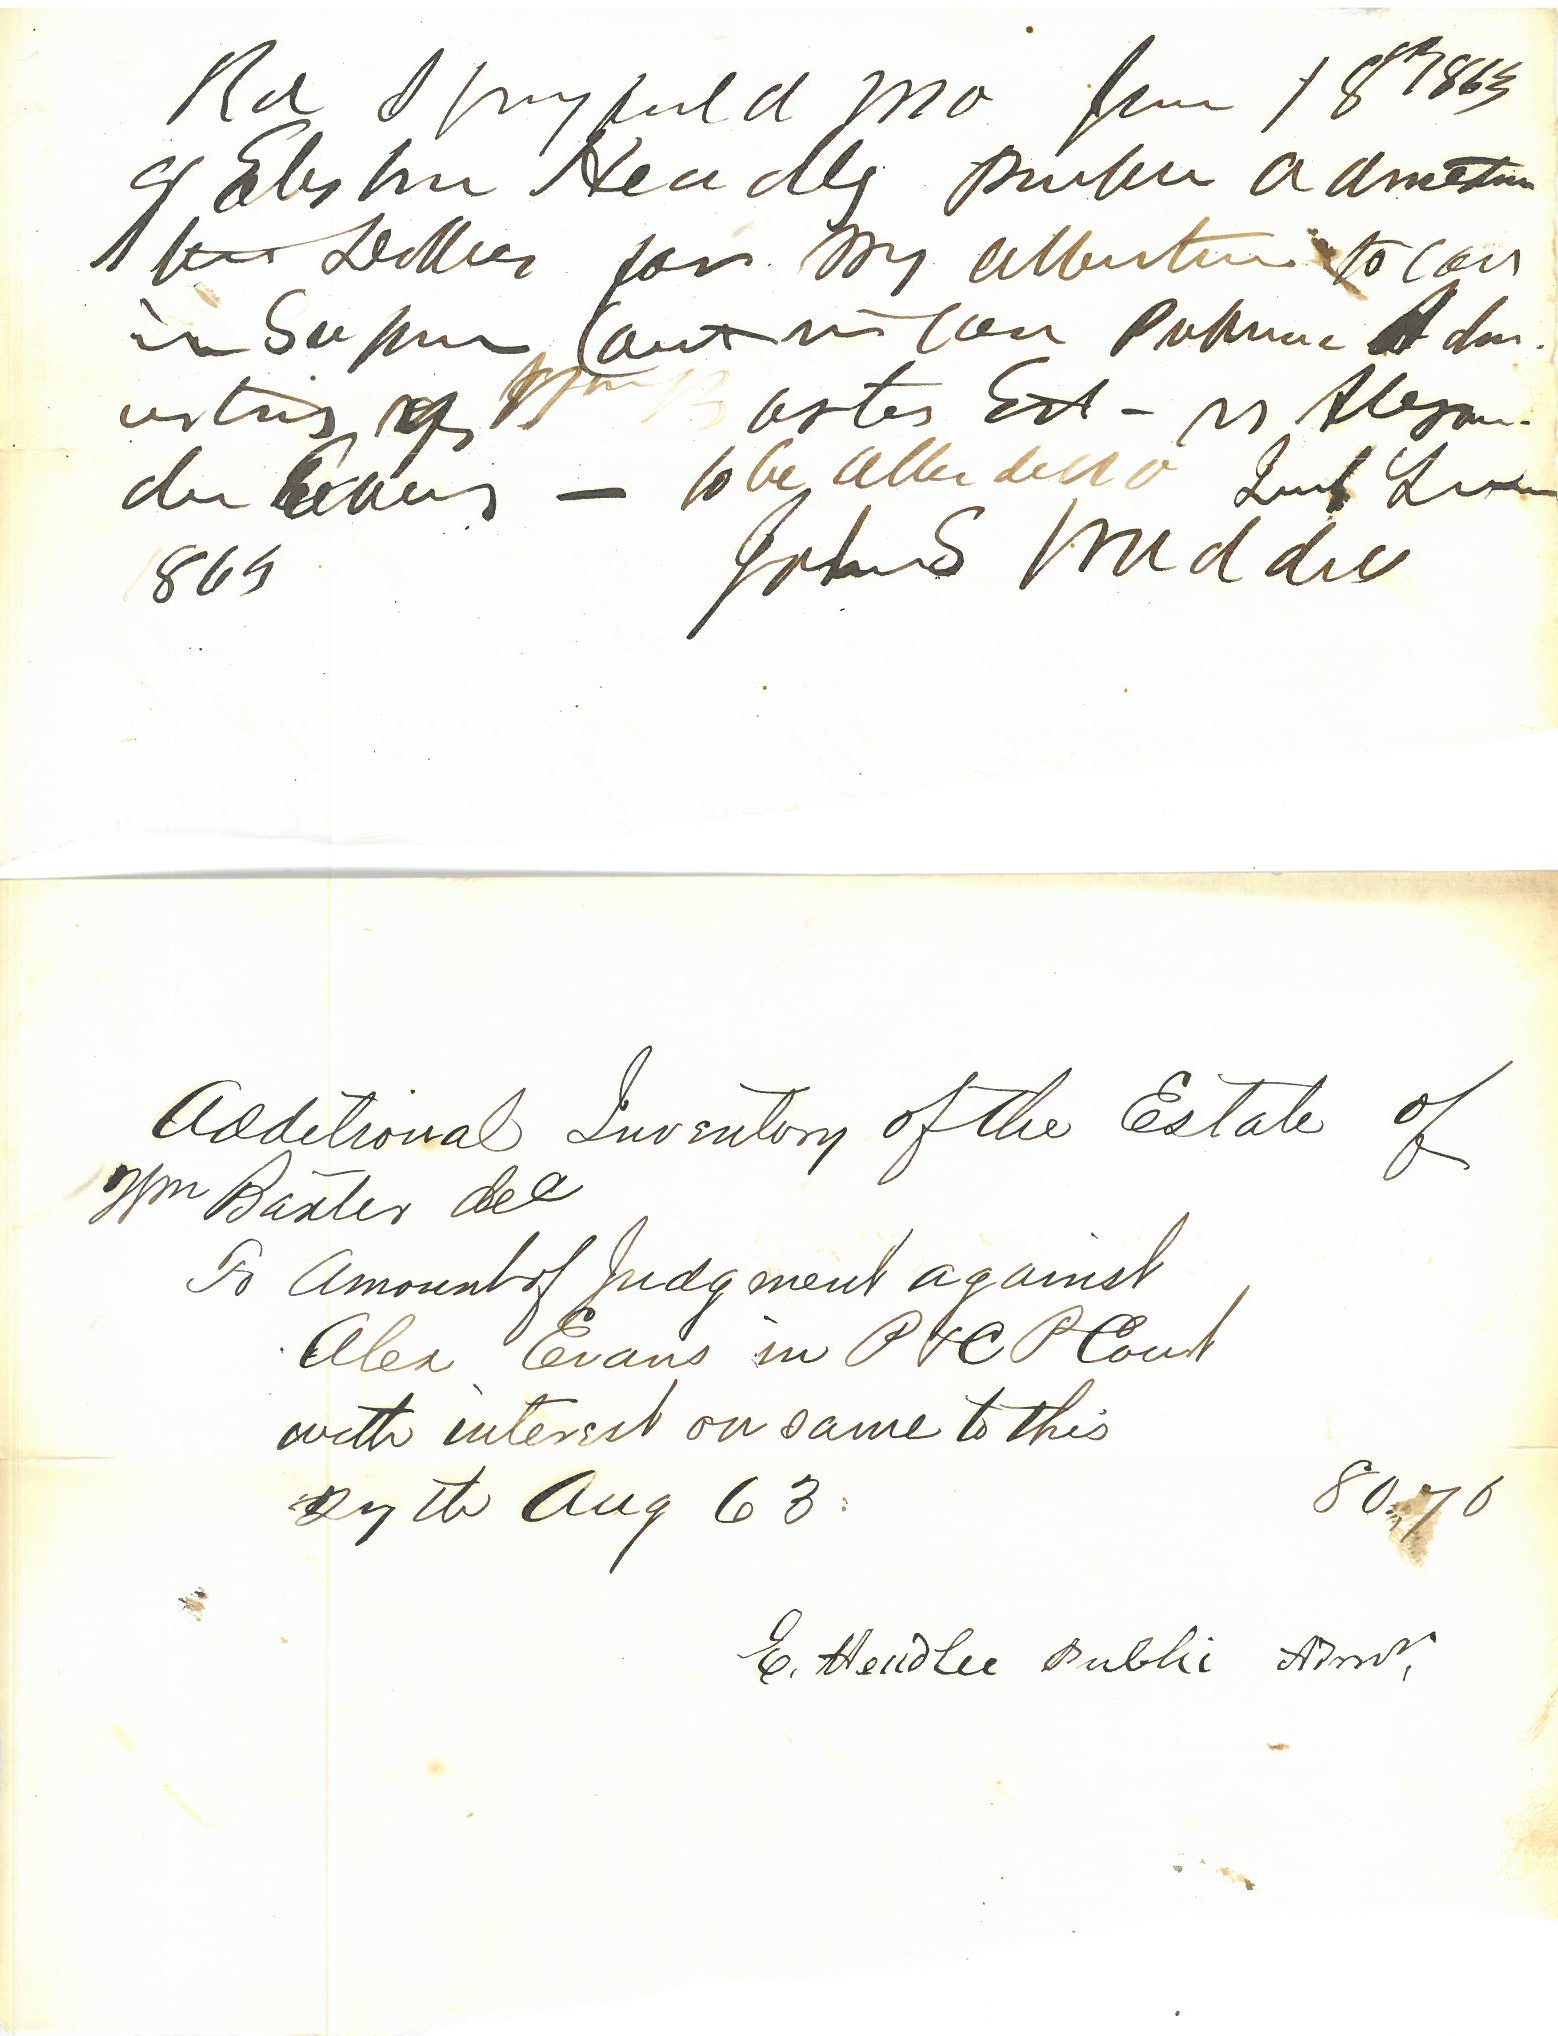 Rcd Springfield Mo June 18th 1863
of Elisha Headlee Public Admistra
ten Dollars for my attention to case
in Supreme Court in case Public Adm-
istris of Wm Baxter Est - vs Alexan-
der Evans - to be attended to
1863 John S Waddill
Additional Inventory of the Estate of
Wm Baxter decd
To Amount of Judgment against
Alex Evans in P & C P Court
with interest on same to this
27th Aug 63 80,70
E. Headlee Public Admr,